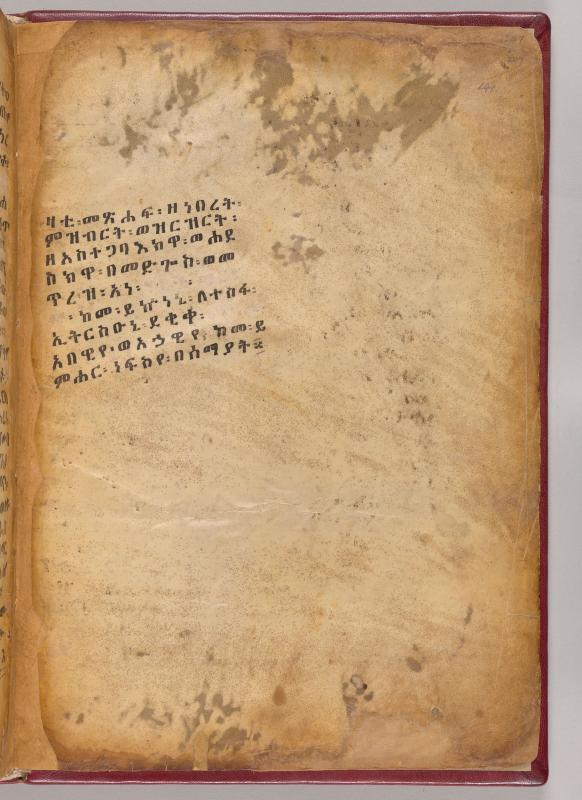 ዛቲ፡መጽሐፍ፡ዘነበረት፡
ምዝብርት፡ወዝርዝርት፡
ዘአስተጋባእክዋ፡ወሐደ
ስክዋ፡በመድጐስ፡ወመ
ጥረዝ፡አነ፡
ከመ፡ይኵነኒ፡ለተስፋ፡
ኢትርስዑኒ፡ደቂቀ፡
አበዊየ፡ወአኃዊየ፡ከመ፡ይ
ምሐር፡ነፍስየ፡በሰማያት።